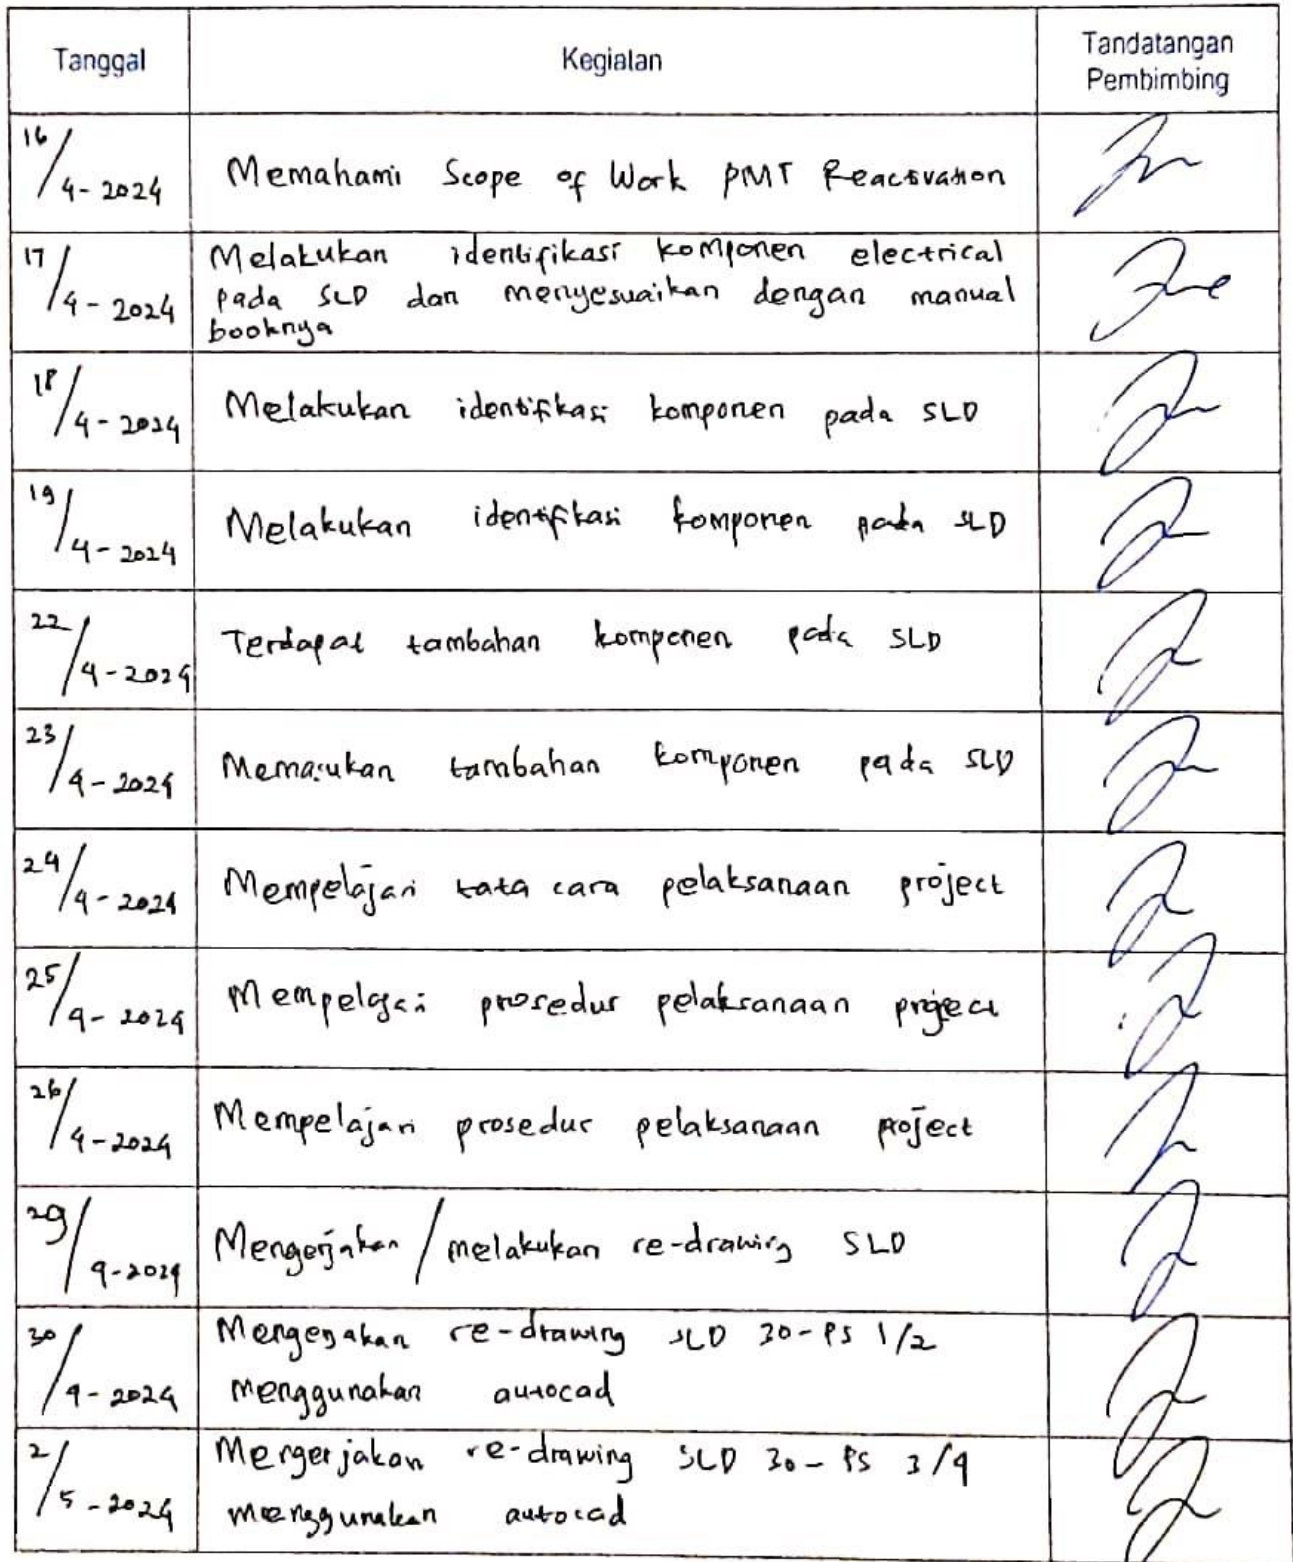 Tanggal Kegiatan Tandatangan
Pembimbing
16/4-2024 Memahami Scope of Work PMT Reactivation
17/4-2024 Melakukan identifikasi komponen electrical
pada SLD dan menyesuaikan dengan manual
booknya
18/4-2024 Melakukan identifikasi komponen pada SLD
19/4-2024 Melakukan identifikasi komponen pada SLD
22/4-2024 Terdapat tambahan komponen pada SLD
23/4-2024 Memasukan tambahan komponen pada SLD
24/4-2024 Mempelajari tata cara pelaksanaan project
25/4-2024 Mempelajari prosedur pelaksanaan project
26/4-2024 Mempelajari prosedur pelaksanaan project
29/4-2024 Mengerjakan / melakukan re-drawing SLD
30/4-2024 Mengerjakan re-drawing SLD 30-PS 1/2
menggunakan autocad
2/5-2024 Mengerjakan re-drawing SLD 30-PS 3/4
menggunakan autocad